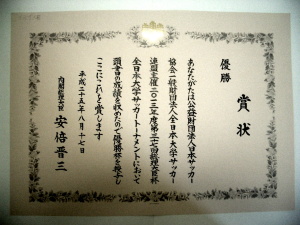 賞状
優勝
あなたがたは公益財団法人日本サッカー
協会一般財団法人全日本大学サッカー
連盟主催二〇一三年度第三十七回総理大臣杯
全日本大学サッカートーナメントにおいて
頭書の成績を収めたので優勝杯を授与し
ここにこれを賞します
平成二十五年八月十七日
内閣総理大臣
安倍晋三